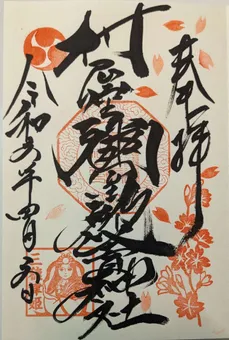 奉拝
村屋坐彌冨都比賣神社
令和六年四月 日
三 姫